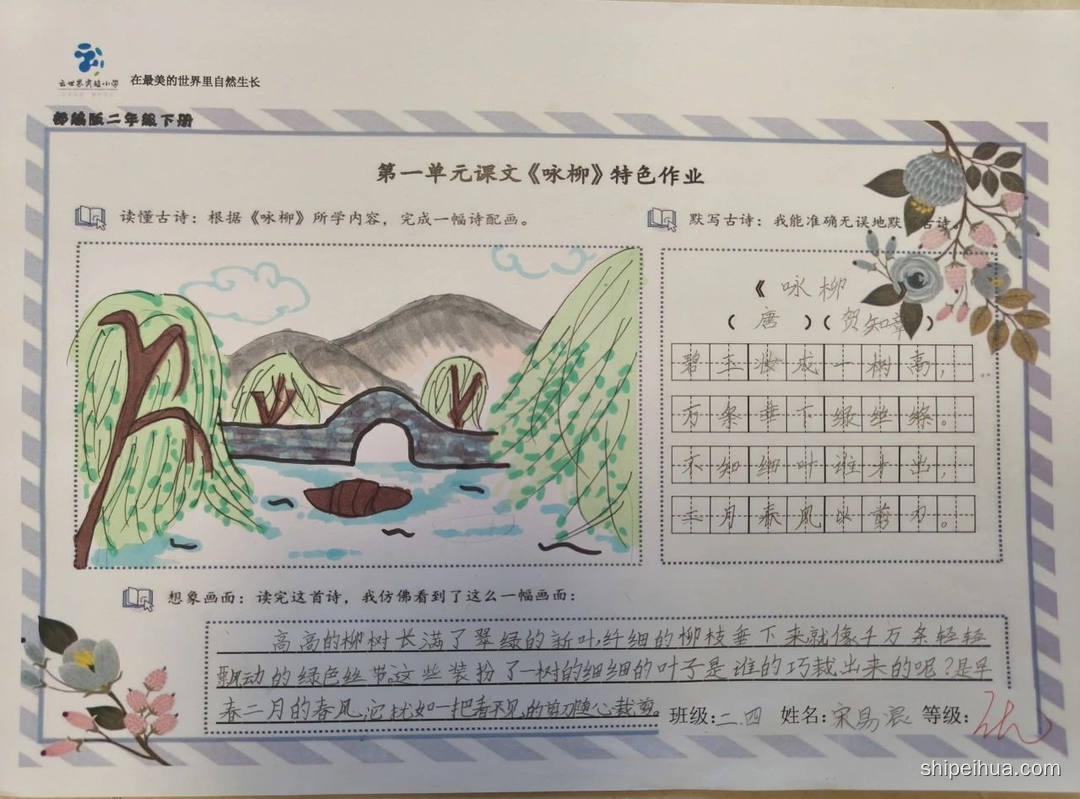 云世界实验小学
在最美的世界里自然生长
部编版二年级下册
第一单元课文《咏柳》特色作业
读懂古诗：根据《咏柳》所学内容，完成一幅诗配画。
默写古诗：我能准确无误地默 古诗
《 咏柳
（ 唐 ）（贺知章）
碧玉妆成一树高，
万条垂下绿丝绦。
不知细叶谁才出，
二月春风似剪刀。
想象画面：读完这首诗，我仿佛看到了这么一幅画面：
高高的柳树长满了翠绿的新叶，纤细的柳枝垂下来就像千万条轻轻
飘动的绿色丝带。这些装扮了一树的细细的叶子是谁的巧裁出来的呢？是早
春二月的春风，它犹如一把看不见的剪刀随心裁剪。
班级：二.四 姓名：宋易宸 等级：
shipeihua.com